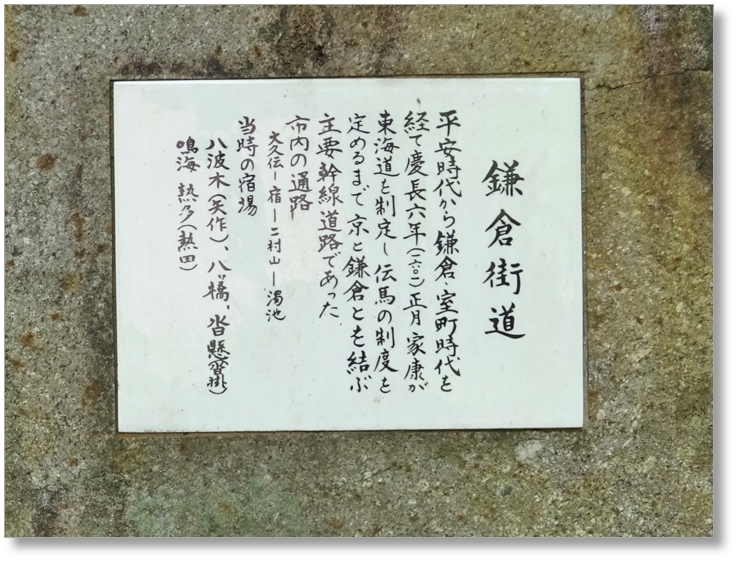 鎌倉街道
平安時代から鎌倉、室町時代を
経て慶長六年(一六〇一)正月家康が
東海道を制定し伝馬の制度を
定めるまで京と鎌倉とを結ぶ
主要幹線道路であった.
市内の通路
大久伝ー宿ー二村山ー濁池
当時の宿場
八波木(矢作)、八ッ橋、沓懸(沓掛)
鳴海 熱多(熱田)